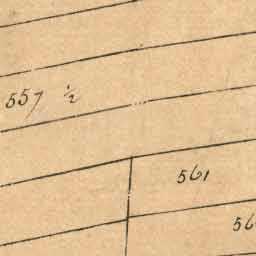 557 ½
561
56